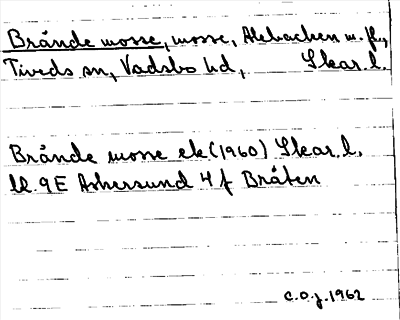 Brände mosse, mosse, Alebacken m. fl.,
Tiveds sn, Vadsbo hd, Skar. l.
Brände mosse ek (1960) Skar. l.
bl. 9E Askersund 4 f Bråten
C.O.J. 1962